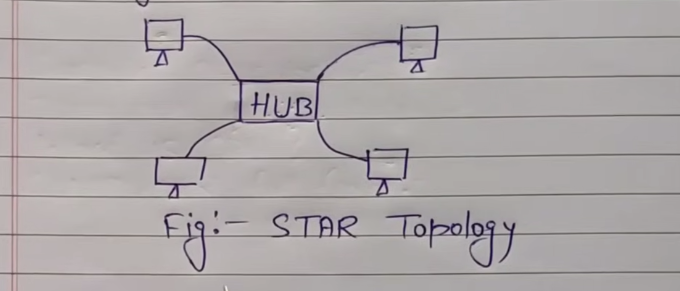 HUB
Fig:- STAR Topology